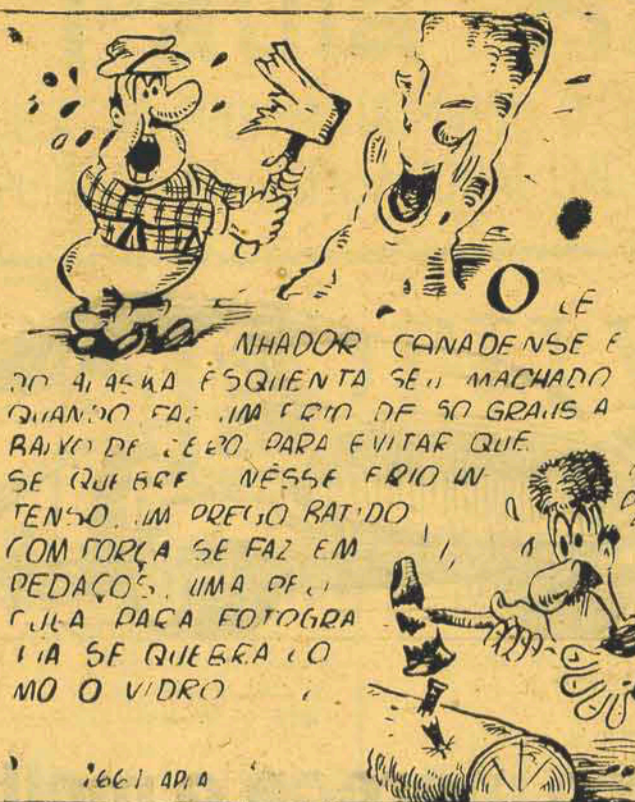 O LE
NHADOR CANADENSE E
DO ALASKA ESQUENTA SEU MACHADO
QUANDO FAZ UM FRIO DE 50 GRAUS A
BAIXO DE ZERO PARA EVITAR QUE
SE QUEBRE NESSE FRIO IN
TENSO, UM PREGO BATIDO
COM FORÇA SE FAZ EM
PEDAÇOS. UMA PELI
CULA PARA FOTOGRA
FIA SE QUEBRA CO
MO O VIDRO